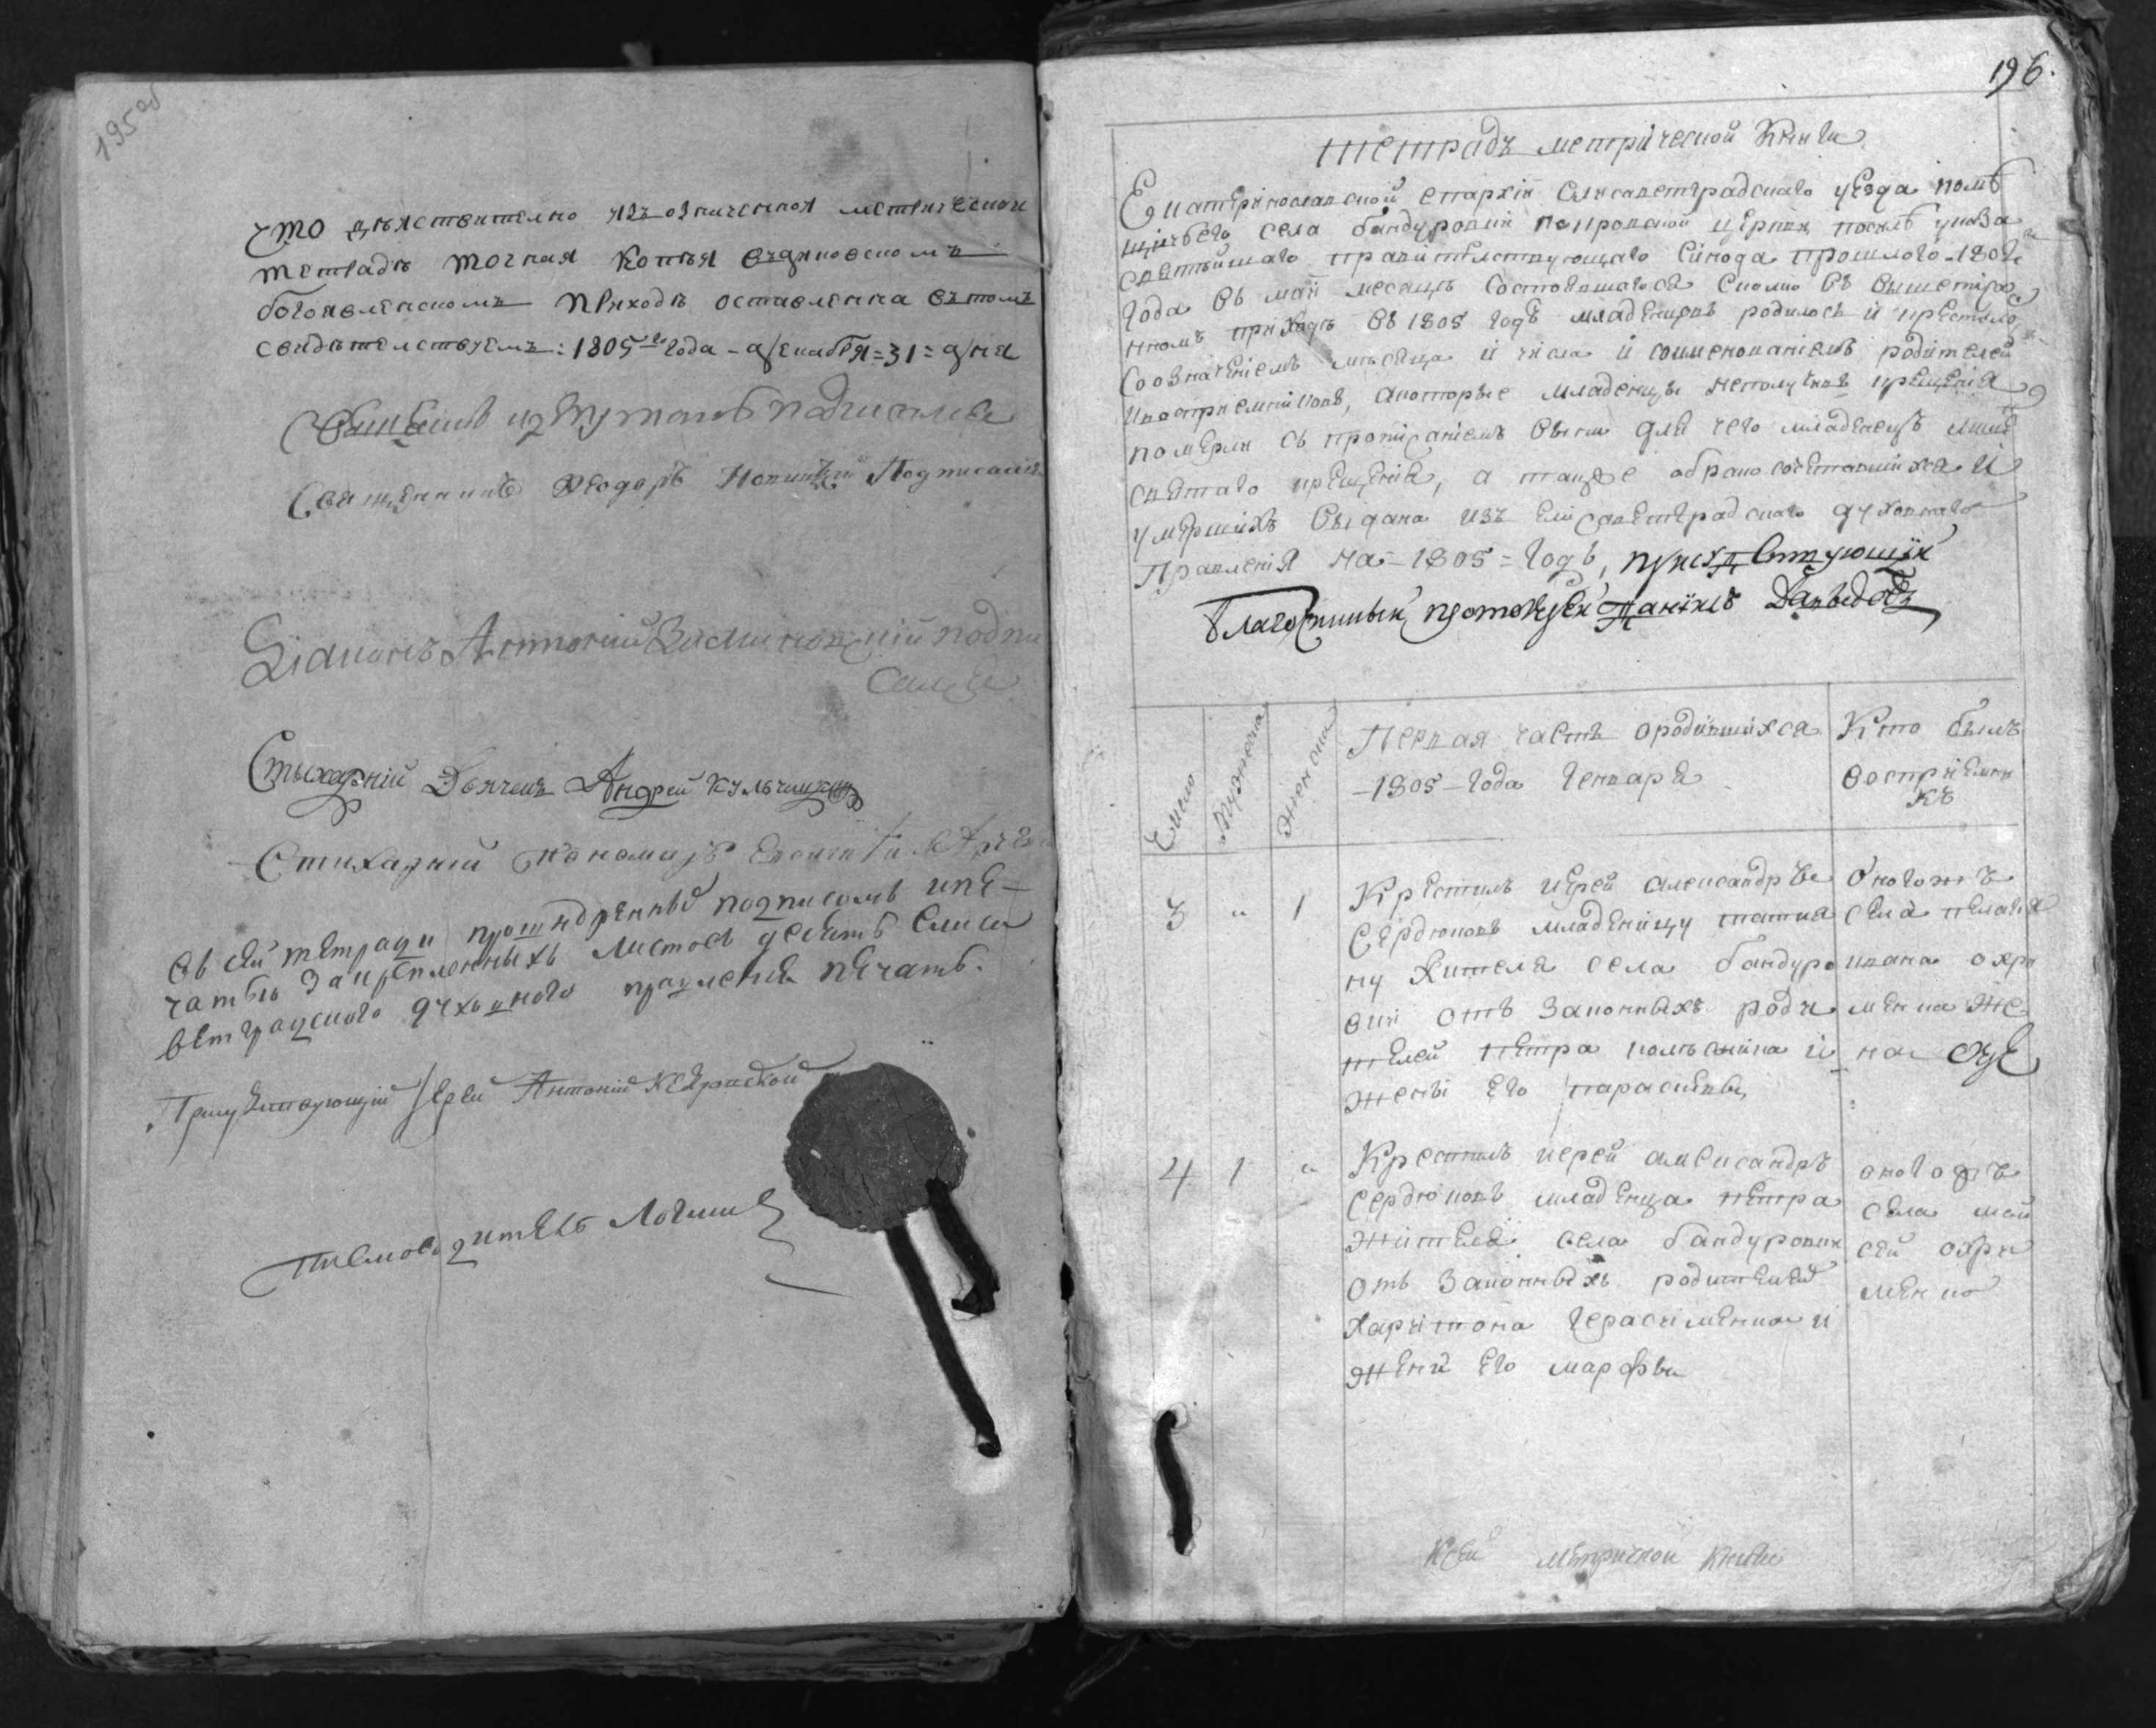 195 об
что дѣйствително изъ означенной метрической
тетрадѣ точная копья въ
богоявленскомъ приходѣ оставленна въ томъ
свидѣтелствуемъ: 1805 го года - декабря = 31 = дня
подписался
Священникъ Феодоръ Подписался
Діаконъ Антоній подпи
сался
Стыхарній Дьячекъ Андрей
Стихарний пономарь
Въ сей тетради прошнуренныѣ подписомъ и пе-
чатью закрепленныхъ листовъ десять Елиса
ветградского духовного правленія печать.
Присутствующий Іерей Антоній
Писмоводитель Логин
196.
тетрадъ метрической Книги
Екатеринославской епархіи Елисаветградскаго уезда помѣ
щичьего села бандуровки покровской церкви посилѣ указа
святѣйшаго правителствующаго Сінода прошлого - 1802 г
года въ маи месяцѣ состоявшагося Сколко въ вышепро
нномъ приходѣ въ 1805 годѣ младенцовъ родилось и крестило
Со означеніемъ мѣсяца и числа и соименованіемъ родителей
и воспріемниковъ, а которые младенцы неполучивъ крещенія
померли съ прописаніемъ вины для чего младенецъ лише
святаго крещенія, а также о бракосочетавшихся и
умершихъ выдана изъ Елисаветградскаго духовнаго
Правленія на - 1805 = годъ, присудствующій
Благочинный протоіерей Даніилъ Давыдовъ
Число
Мужеска
Женска
Первая часть о родившихся
- 1805 - года Генваря
Кто былъ
воспріемни
къ
3 " 1
Крестилъ иерей александръ
Сердюковъ младеницу татия
ну жителя села бандуро
вки отъ законныхъ роди
телей петра колѣсника и
жены его параскевы
Оногожъ
села пелагия
ивана охри
менка же
на
4 1 "
Крестилъ иерей александръ
сердюковъ младенца петра
жителя села бандуровки
отъ законныхъ родителей
харитона герасименка и
жени его марфы
оногожъ
села мой
сей охри
менко
Ксей метричной книги